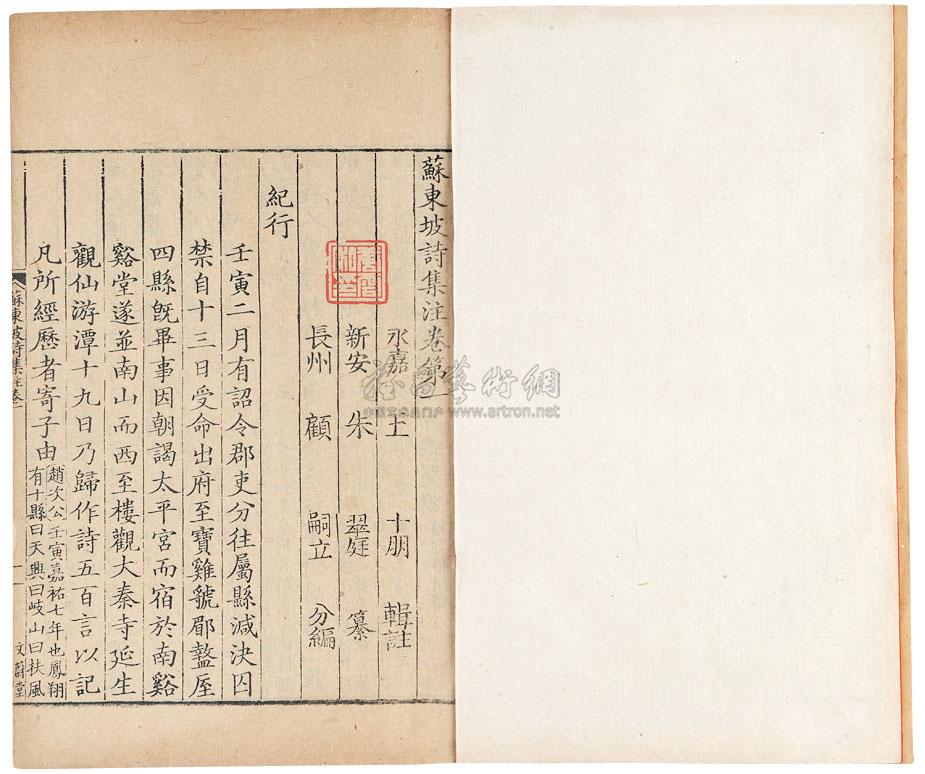 蘇東坡詩集注卷第一
永嘉 王 十朋 輯註
新安 朱 翠庭 纂
長州 顧 嗣立 分編
紀行
壬寅二月有詔令郡吏分往屬縣減決囚
禁自十三日受命出府至寶雞虢郿盩厔
四縣旣畢事因朝謁太平宮而宿於南谿
谿堂遂並南山而西至樓觀大秦寺延生
觀仙游潭十九日乃歸作詩五百言以記
凡所經歷者寄子由
趙次公壬寅嘉祐七年也鳳翔
有十縣曰天興曰岐山曰扶風
蘇東坡詩集注卷一
一
文蔚堂
藝術網
www.artron.net